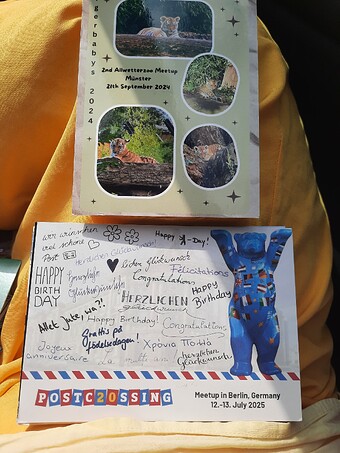 gerbabys 2024
2nd Allwetterzoo Meetup
Münster
21th September 2024
wir wünschen
viel schöne
Post
Herzlichen Glückwunsch!
Happy -Day!
HAPPY
BIRTH
DAY
Glückwunsch
Félicitations
Congratulations
HERZLICHEN
Happy
Birthday!
Happy Birthday!
Congratulations
Grattis på
födelsedagen!
Χρόνια Πολλά
Joyeux
anniversaire
herzlichen
Glückwunsch
POSTC20SSING
Meetup in Berlin, Germany
12.-13. July 2025